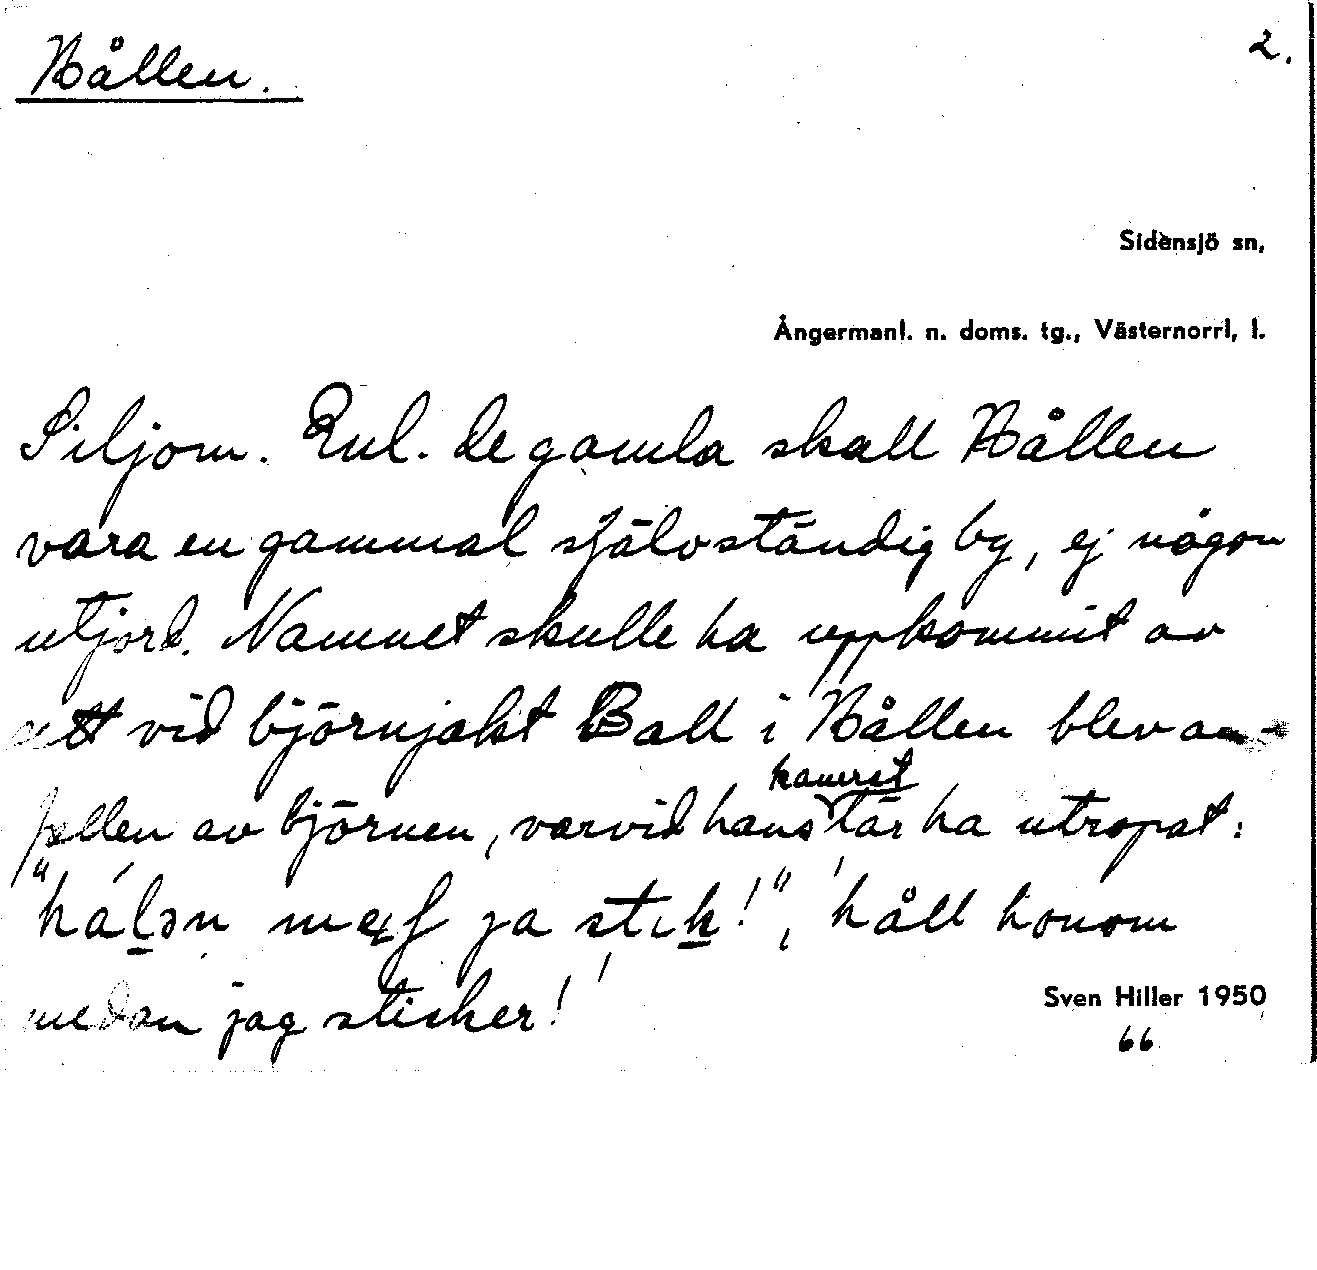 Hållen. 2.
Sidensjö sn,
Ångermanl. n. doms. tg., Västernorrl, l.
Siljom. Enl. de gamla skall Hållen
vara en gammal självständig by, ej någon
utjord. Namnet skulle ha uppkommit av
att vid björnjakt Ball i Hållen blev an-
kamrat
fallen av björnen, varvid hans tär ha utropat:
"hålən ja stɩk!", 'håll honom
medan jag sticker!'
Sven Hiller 1950
66